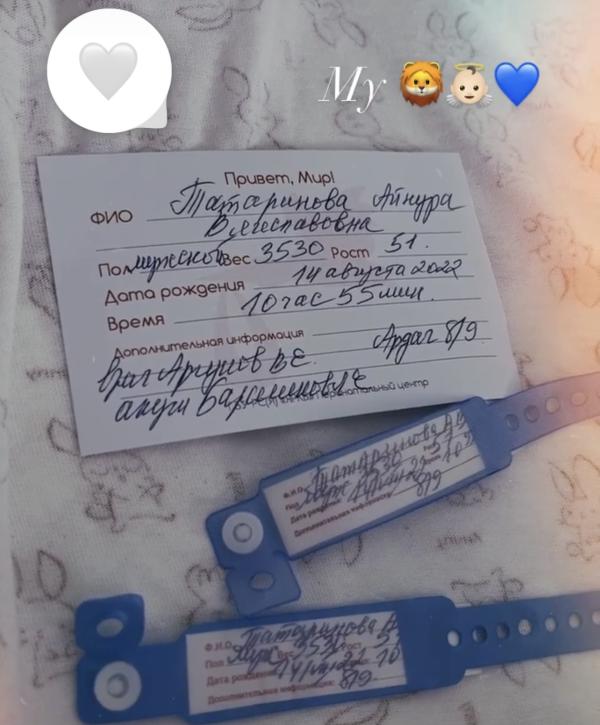 My 🦁👼🏻💙
Привет, Мир!
ФИО Татаринова Айнура
Вячеславовна
Пол мужской Вес 3530 Рост 51.
Дата рождения 14 августа 2022
Время 10 час 55 мин.
Дополнительная информация
Апгар 8/9
врач Аргунов ВЕ.
акуш
Перинатальный центр
Ф.И.О. Татаринова А
Пол Муж 3530 Рост 51
Дата рождения
Дополнительная информация:
8/9
Ф.И.О. Татаринова А
Пол Муж Вес 3530 Рост 51
Дата рождения
Дополнительная информация: 8/9